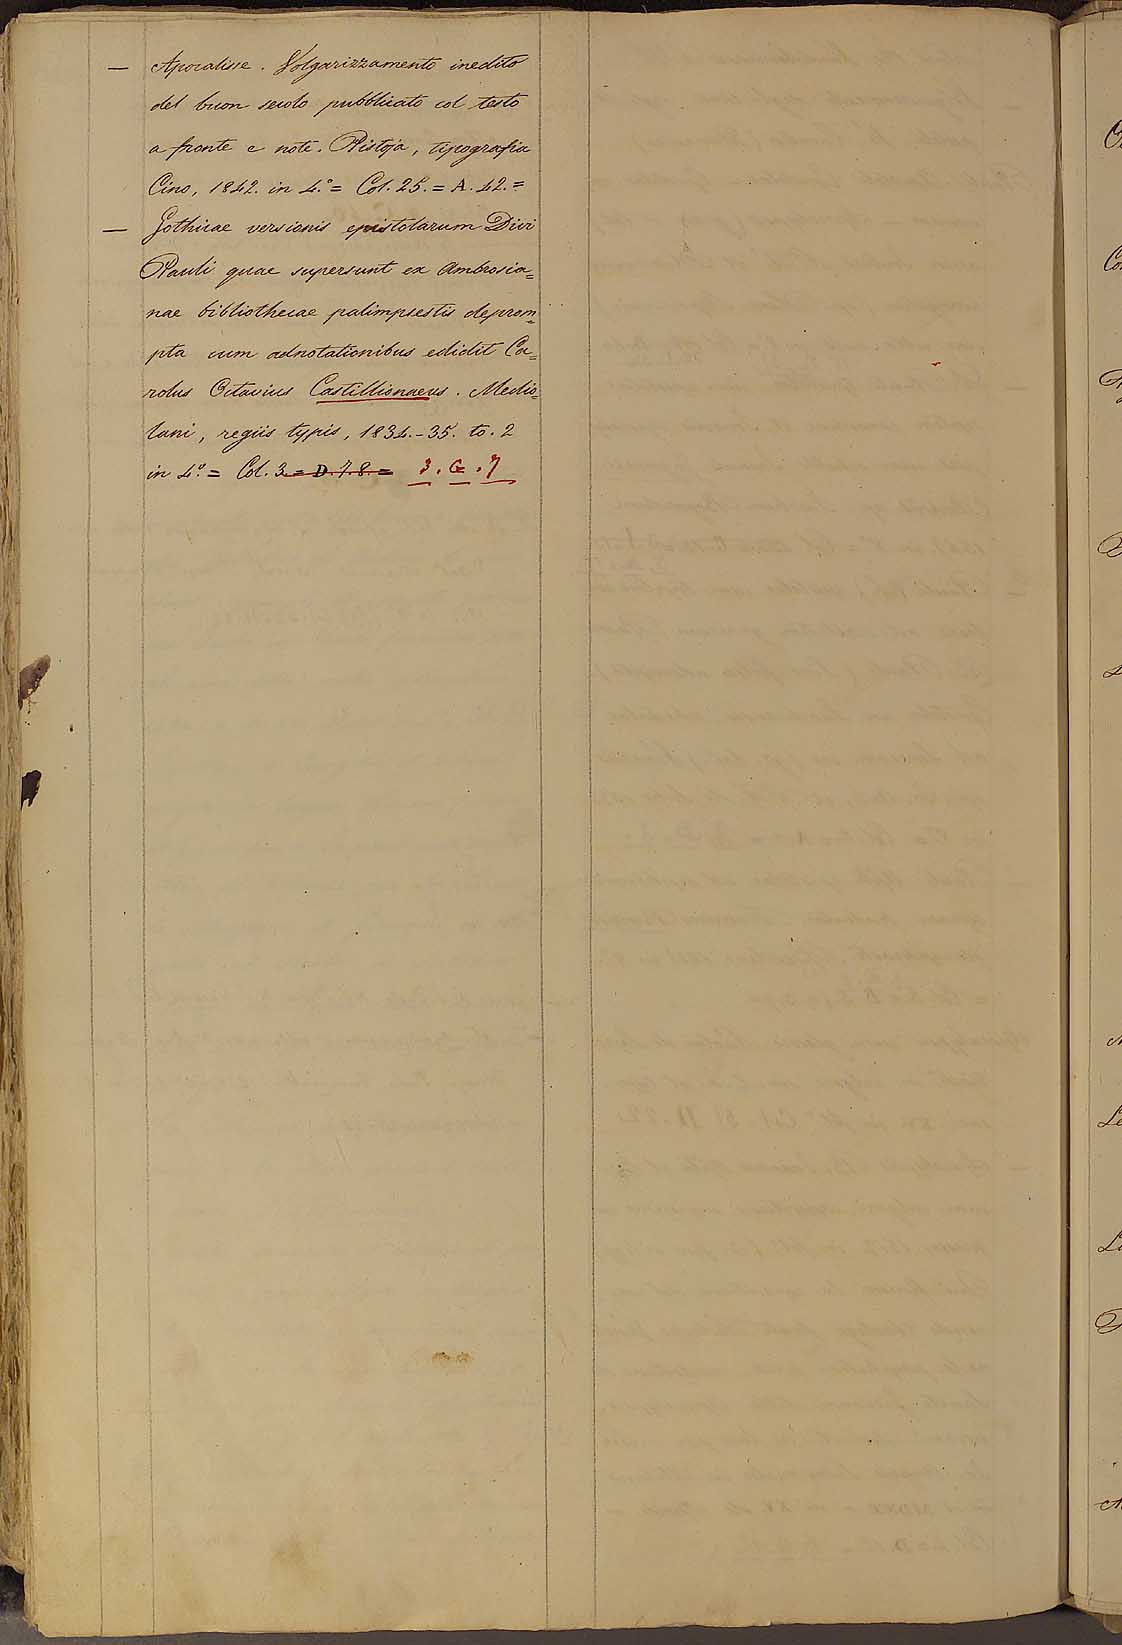 — Apocalisse. Volgarizzamento inedito
del buon secolo pubblicato col testo
a fronte e note. Pistoja, tipografia
Cino, 1842. in 4.° = Col. 25. = A. 42. =
— Gothicae versionis epistolarum Divi
Pauli quae supersunt ex Ambrosia=
nae bibliothecae palimpsestis deprom=
pta cum adnotationibus edidit Ca=
rolus Octavius Castillionaeus. Medio=
lani, regiis typis, 1834.-35. to. 2
in 4.° = Col. 3. = D. 7. 8. = 3. G. 7